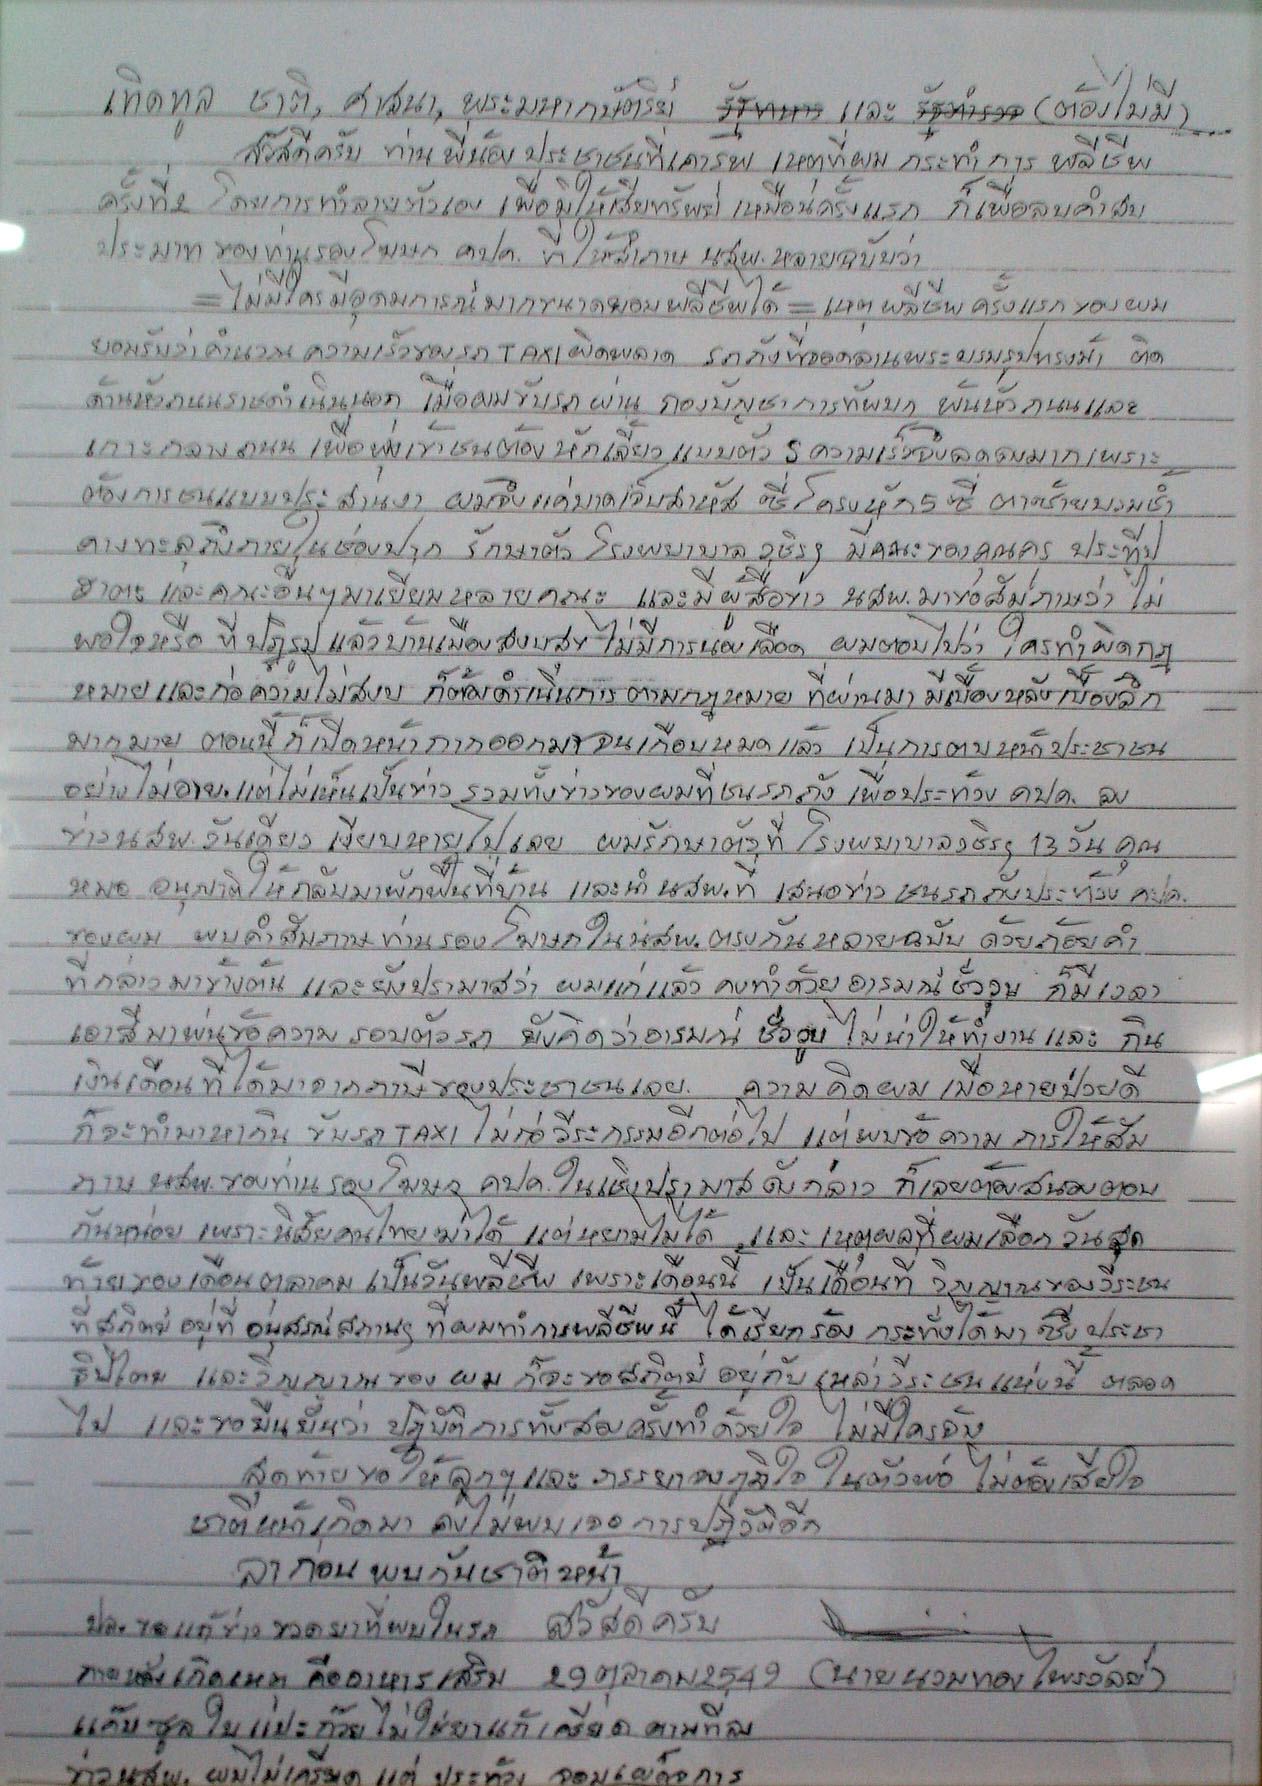 เทิดทูล ชาติ, ศาสนา, พระมหากษัตริย์ รัฐทหาร และ รัฐตำรวจ (ต้องไม่มี)
สวัสดีครับ ท่านพี่น้องประชาชนที่เคารพ เหตุที่ผม กระทำการ พลีชีพ
ครั้งที่2 โดยการทำลายตัวเอง เพื่อมิให้เสียทรัพย์ เหมือนครั้งแรก ก็เพื่อลบคำสบ
ประมาท ของท่านรองโฆษก คปค. ที่ให้สำภาษ นสพ.หลายฉบับว่า
=ไม่มีใครมีอุดมการณ์มากขนาดยอมพลีชีพได้= เหตุพลีชีพครั้งแรกของผม
ยอมรับว่าคำนวณความเร็วของรถ TAXI ผิดพลาด รถถังที่จอดลานพระบรมรูปทรงม้า ติด
ด้านหัวถนนราชดำเนินนอก เมื่อผมขับรถผ่าน กองบัญชาการทัพบก พ้นหัวถนนและ
เกาะกลางถนน เพื่อพุ่งเข้าชนต้องหักเลี้ยวแบบตัว S ความเร็วจึงลดลงมากเพราะ
ต้องการชนแบบประสานงา ผมจึงแค่บาดเจ็บสาหัส ซี่โครงหัก5ซี่ ตาซ้ายบวมช้ำ
คางทะลุถึงภายในช่องปาก รักษาตัว โรงพยาบาลวชิรฯ มีคณะของคุณครู ประทีป
ฮาตะ และคณะอื่นๆมาเยี่ยมหลายคณะ และมีผู้สื่อข่าว นสพ.มาขอสัมภาษว่า ไม่
พอใจหรือ ที่ปฏิรูปแล้วบ้านเมืองสงบสุขไม่มีการนองเลือด ผมตอบไปว่า ใครทำผิดกฎ
หมายและก่อความไม่สงบ ก็ต้องดำเนินการตามกฎหมาย ที่ผ่านมา มีเบื้องหลังเบื้องลึก
มากมาย ตอนนี้ก็เปิดหน้ากากออกมาจนเกือบหมดแล้ว เป็นการตบหน้าประชาชน
อย่างไม่อาย.แต่ไม่เห็นเป็นข่าว รวมทั้งข่าวของผมที่ชนรถถัง เพื่อประท้วง คปค. ลง
ข่าวนสพ.วันเดียว เงียบหายไปเลย ผมรักษาตัวที่ โรงพยาบาลวชิรฯ 13 วัน คุณ
หมอ อนุญาติให้กลับมาพักฟื้นที่บ้าน และนำ นสพ.ที่ เสนอข่าว ชนรถถังประท้วง คปค.
ของผม พบคำสัมภาษท่านรองโฆษกในนสพ.ตรงกันหลายฉบับ ด้วยถ้อยคำ
ที่กล่าวมาข้างต้น และยังปรามาสว่า ผมแก่แล้ว คงทำด้วยอารมณ์ชั่ววูบ ก็มีเวลา
เอาสีมาพ่นข้อความรอบตัวรถ ยังคิดว่าอารมณ์ ชั่ววูบ ไม่น่าให้ทำงานและ กิน
เงินเดือนที่ได้มาจากภาษีของประชาชนเลย. ความคิดผม เมื่อหายป่วยดี
ก็จะทำมาหากิน ขับรถTAXI ไม่ก่อวีระกรรมอีกต่อไป แต่พบข้อความ การให้สัม
ภาษ นสพ.ของท่านรองโฆษก คปค.ในเชิงปรามาสดังกล่าว ก็เลยต้องสนองตอบ
กันหน่อย เพราะนิสัยคนไทยฆ่าได้ แต่หยามไม่ได้ และ เหตุผลที่ผมเลือก วันสุด
ท้ายของเดือนตุลาคม เป็นวันพลีชีพ เพราะเดือนนี้ เป็นเดือนที่ วิญญาณของวีระชน
ที่สถิตย์อยู่ที่ อนุสรณ์สถานฯ ที่ผมทำการพลีชีพนี้ ได้เรียกร้อง กระทั่งได้มา ซึ่ง ประชา
ธิปไตย และวิญญาณของ ผม ก็จะขอสถิตย์ อยู่กับเหล่าวีระชนแห่งนี้ ตลอด
ไป และขอยืนยันว่า ปฏิบัติการทั้งสองครั้งทำด้วยใจ ไม่มีใครจ้าง
สุดท้ายขอให้ลูกๆและ ภรรยาจงภูมิใจ ในตัวพ่อ ไม่ต้องเสียใจ
ชาติหน้าเกิดมา คงไม่พบเจอ การปฏิวัติอีก
ลาก่อน พบกันชาติหน้า
ปล. ขอแก้ข่าว ขวดยาที่พบในรถ สวัสดีครับ
ภายหลังเกิดเหตุ คืออาหารเสริม 29 ตุลาคม 2549 (นายนวมทอง ไพรวัลย์)
แค๊บซูล ใบแปะก๊วย ไม่ใช่ยาแก้เครียด ตามที่ลง
ข่าวนสพ. ผมไม่เครียด แต่ ประท้วง จอมเผด็จการ